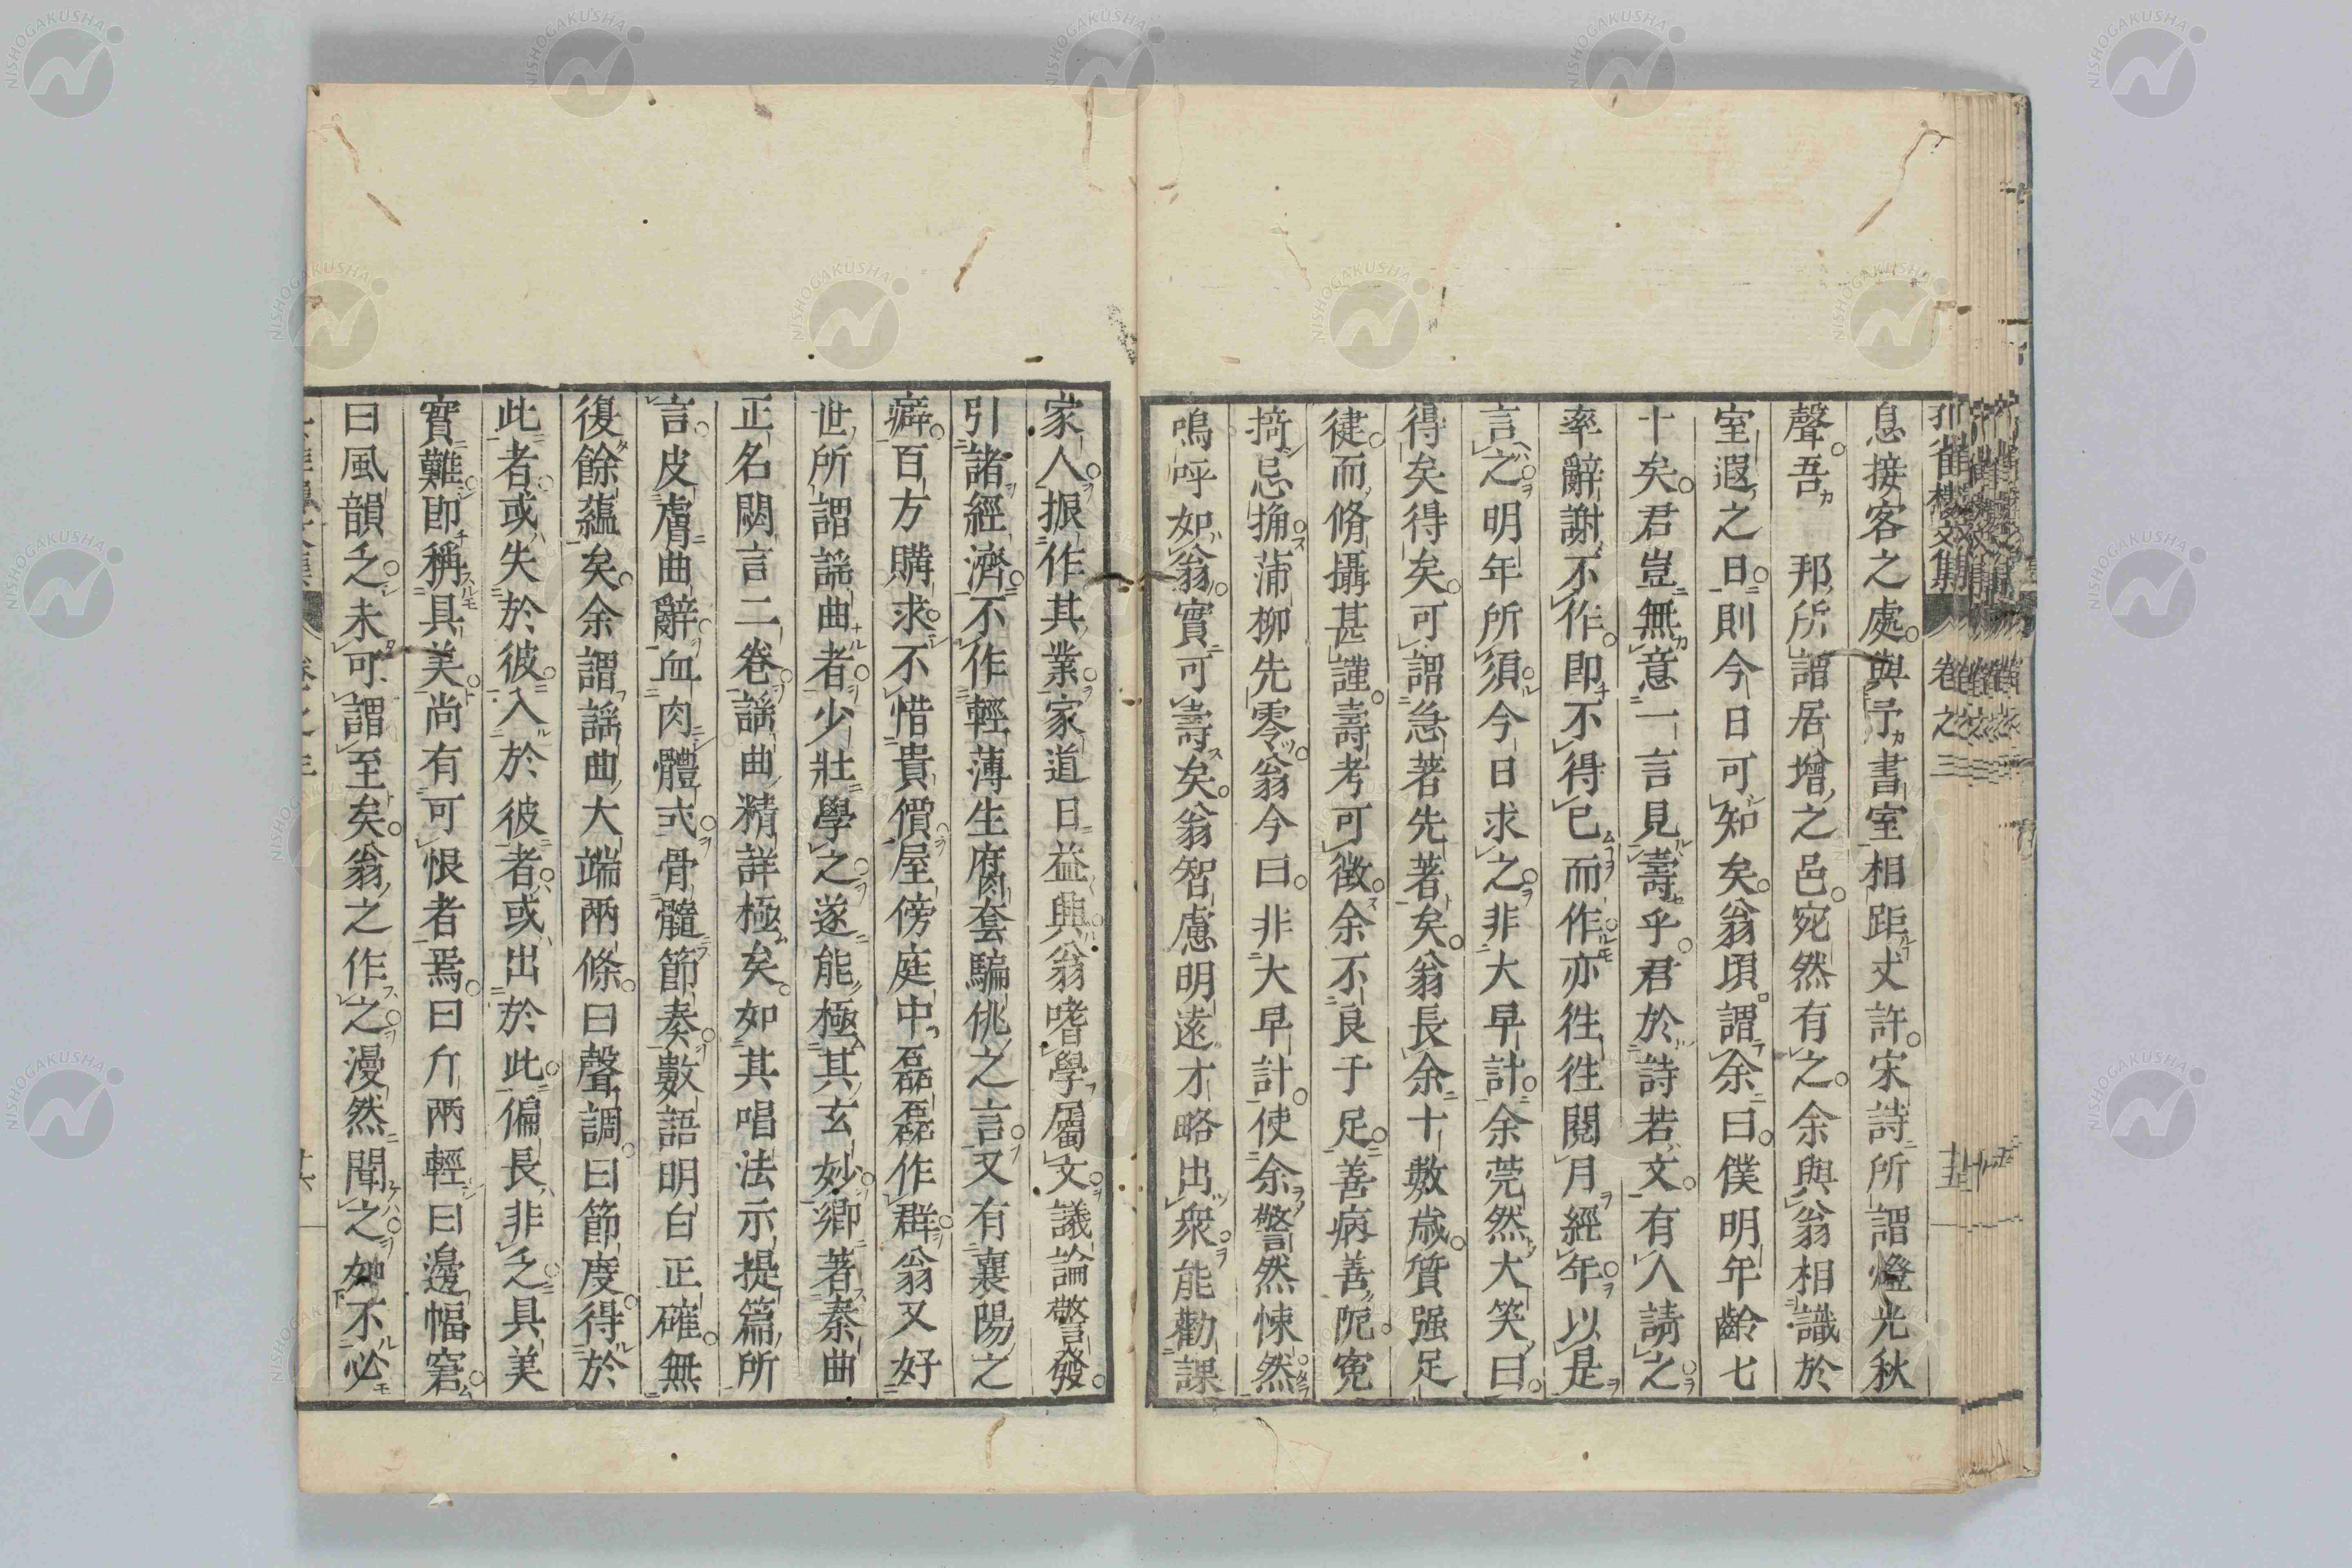 孔雀樓文集 卷之三
息接客之處與予書室相距丈許宋詩所謂燈光秋
聲吾 邦所謂居增之邑宛然有之余與翁相識於
室遐之日則今日可知矣翁頃謂余曰僕明年齡七
十矣君豈無意一言見壽乎君於詩若文有人請之
率辭謝不作即不得已而作亦往往閱月經年以是
言之明年所須今日求之非大早計余莞然大笑曰
得矣得矣可謂急著先著矣翁長余十數歲質强足
健而脩攝甚謹壽考可徵余不良于足善病善阨寃
掎忌捔蒲柳先零翁今曰非大早計使余警然悚然
嗚呼如翁實可壽矣翁智慮明遠才略出衆能勸課
家人振作其業家道日益興翁嗜學屬文議論警發
引諸經濟不作輕薄生腐肉套騙佻之言又有襄陽之
癖百方購求不惜貴價屋傍庭中磊磊作群翁又好
世所謂謡曲者少壯學之遂能極其玄妙卿著秦曲
正名閟言二卷謡曲精詳極矣如其唱法示提篇所
言皮膚曲辭血肉體式骨髓節奏數語明白正確無
復餘蘊矣余謂謡曲大端兩條曰聲調曰節度得於
此者或失於彼入於彼者或出於此偏長非乏具美
實難即稱具美尚有可恨者焉曰斤兩輕曰邊幅窘
曰風韻乏未可謂至矣翁之作之漫然聞之如不必